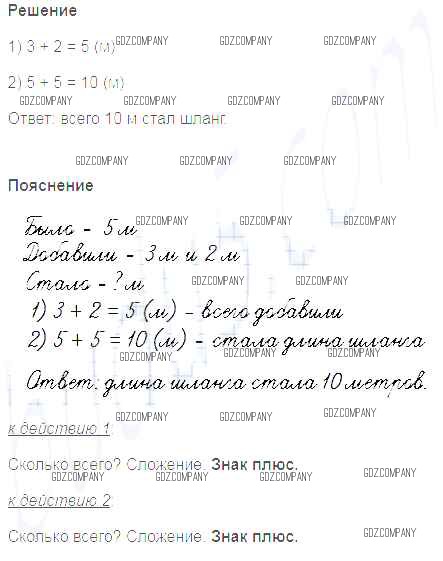 Решение
1) 3 + 2 = 5 (м)
GDZCOMPANY GDZCOMPANY GDZCOMPANY
2) 5 + 5 = 10 (м)
GDZCOMPANY GDZCOMPANY GDZCOMPANY
Ответ: всего 10 м стал шланг.
GDZCOMPANY GDZCOMPANY GDZCOMPANY
Пояснение
Было - 5 м
GDZCOMPANY GDZCOMPANY GDZCOMPANY
Добавили - 3 м и 2 м
Стало - ? м
GDZCOMPANY GDZCOMPANY
1) 3 + 2 = 5 (м) - всего добавили
GDZCOMPANY GDZCOMPANY GDZCOMPANY
2) 5 + 5 = 10 (м) - стала длина шланга
GDZCOMPANY GDZCOMPANY GDZCOMPANY
Ответ: длина шланга стала 10 метров.
GDZCOMPANY GDZCOMPANY GDZCOMPANY
к действию 1:
Сколько всего? Сложение. Знак плюс.
GDZCOMPANY GDZCOMPANY GDZCOMPANY GDZCOMPANY
к действию 2:
Сколько всего? Сложение. Знак плюс.
GDZCOMPANY